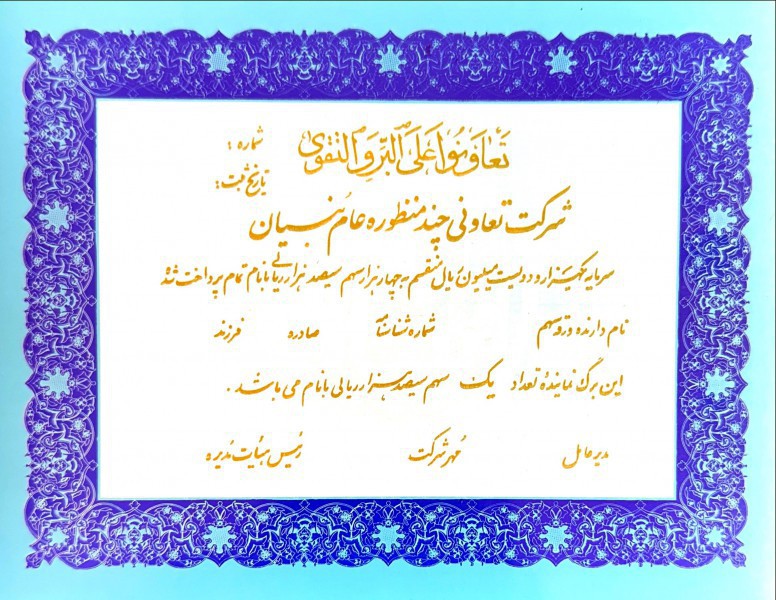 تَعاوَنُوا عَلَی البِرِّ وَ التَّقوی
شماره :
تاریخ ثبت :
شرکت تعاونی چند منظوره عام بنیسان
سرمایه یکهزار و دویست میلیون ریال منقسم به چهار هزار سهم سیصد هزار ریالی بانام تمام پرداخت شده
نام دارنده ورقه سهم شماره شناسنامه صادره فرزند
این برگ نمایندهٔ تعداد یک سهم سیصد هزار ریالی بانام می باشد .
مدیر عامل مهر شرکت رئیس هیأت مدیره